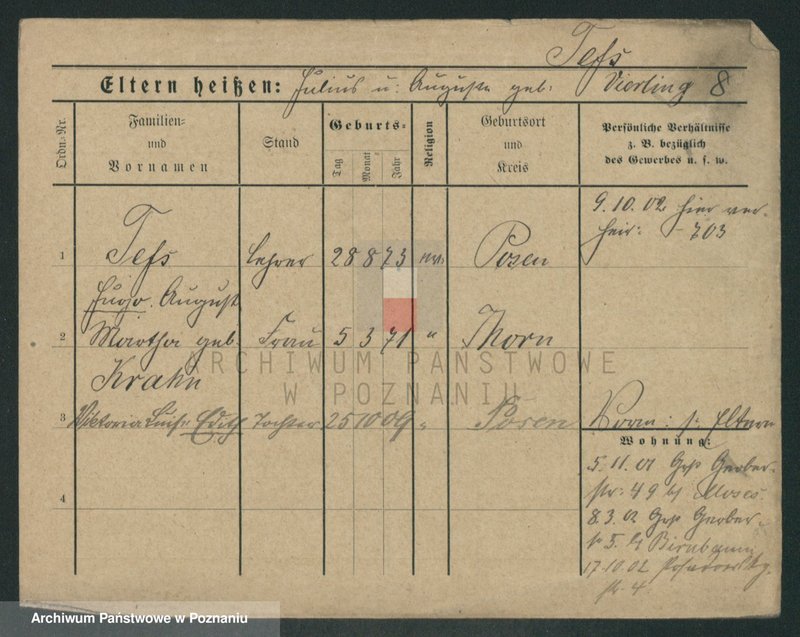 Tefs
Eltern heißen: Julius u: Auguste geb: Vierling 8
Ordn.-Nr.
Familien-
und
Vornamen
Stand
Geburts-
Tag
Monat
Jahr
Religion
Geburtsort
und
Kreis
Persönliche Verhältnisse
z. B. bezüglich
des Gewerbes u. s. w.
9.10.02 hier ver-
heir: - 703
1 Tefs Lehrer 28 8 73 ev. Posen
Hugo. August
2 Martha geb. Frau 5 3 71 " Thorn
Krahn
3 Viktoria Luise Edith Tochter 25 10 09 " Posen
Vorm: s. Eltern
Wohnung:
5.11.01 Grß Gerber-
str: 49 b/ Moses.
8.3.02 Grß Gerber-
5. b/ Birnbaum
17.10.02
str 4
4
ARCHIWUM PAŃSTWOWE
W POZNANIU
Archiwum Państwowe w Poznaniu